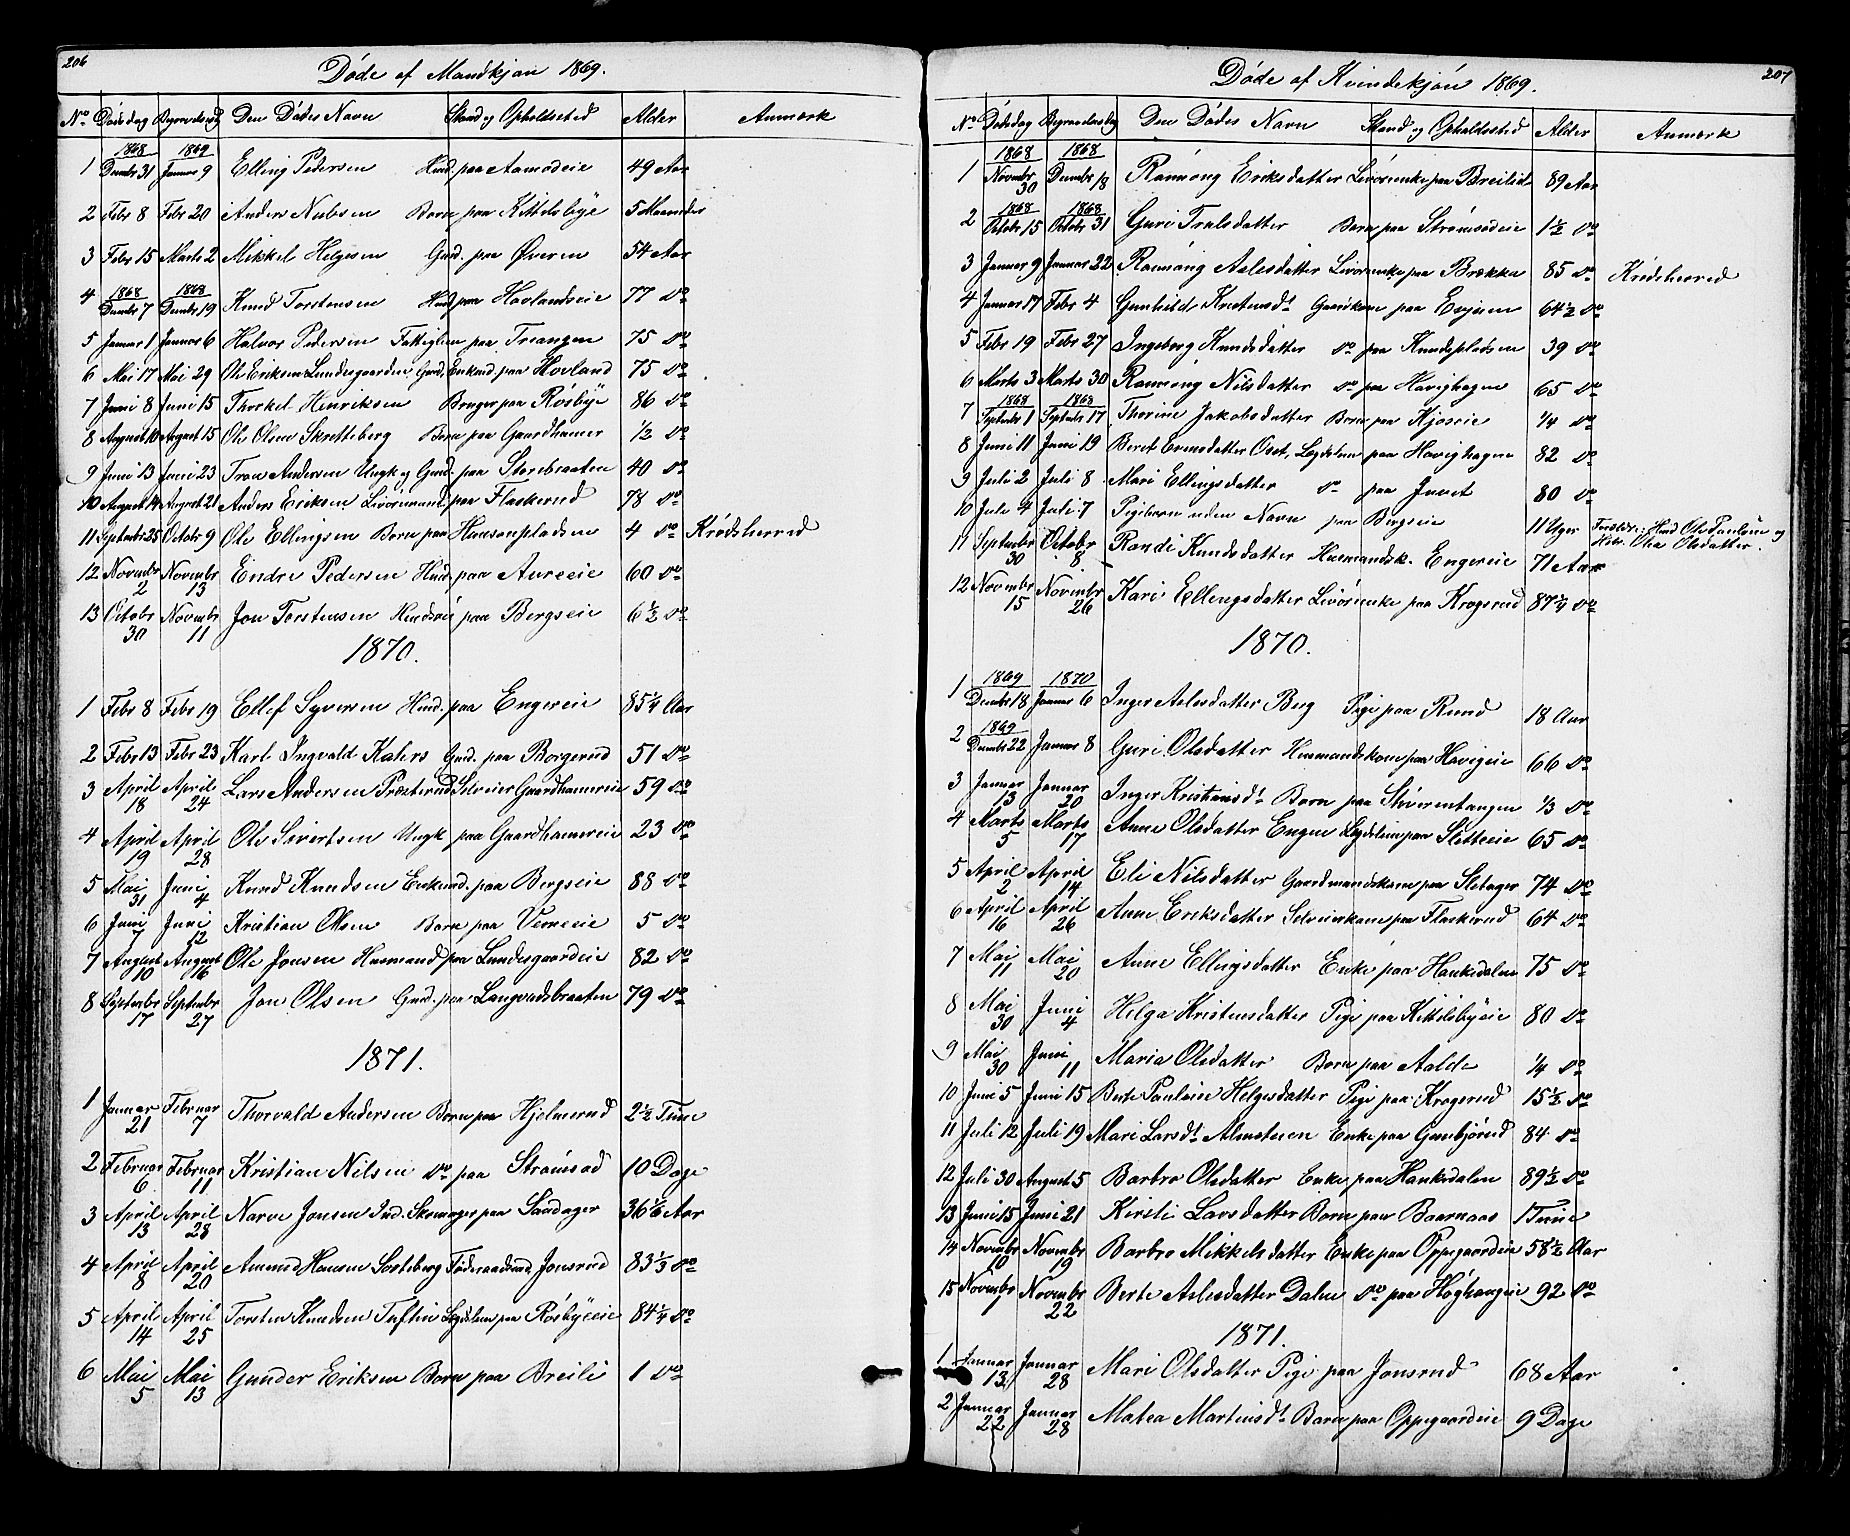 206
Døde af Mandkjøn 1869.
No Dødsdag Begravelsesdag Den Dødes Navn Stand og Opholdssted Alder Anmærk
1868 1869
1 Decembr 31 Januar 9 Elling Pedersen Husd. paa Aamodeie 49 Aar
2 Febr 8 Febr 20 Anders Nubsen Barn paa Kittelsbye 5 Maaneder
3 Febr 15 Marts 2 Mikkel Helgesen Gmd. paa Øveren 54 Aar
1868 1868
4 Decembr 7 Decembr 19 Knud Torstensen Husd. paa Hovlandseie 77 do
5 Januar 1 Januar 6 Halvor Pedersen Fattiglem paa Triangen 75 do
6 Mai 17 Mai 29 Ole Eriksen Lundesgaarden Gmd. Enkmd. paa Hovland 75 do
7 Juni 8 Juni 15 Thorkel Henriksen Bruger paa Rösbye 86 do
8 August 10 August 15 Ole Olsen Skretteberg Barn paa Gaardhamer 1/2 do
9 Juni 13 Juni 23 Tron Andersen Ungk og Gmd. paa Storebraaten 40 do
10 August 14 August 21 Anders Eriksen Livörsmand paa Flaskerud 78 do
11 Septembr 25 Octobr 9 Ole Ellingsen Barn paa Hansenpladsen 4 do Krødsherred
12 Novembr 2 Novembr 13 Endre Pedersen Husd. paa Aureeie 60 do
13 Octobr 30 Novembr 11 Jon Torstensen paa Bergseie 6 1/2 do
1870.
1 Febr 8 Febr 19 Ellef Syversen Husd. paa Engereie 85 1/4 Aar
2 Febr 13 Febr 23 Karl Ingvald Kalers Gmd. paa Borgerud 51 do
3 April 18 April 24 Lars Andersen Præsterud Selveier Gaardhamereie 59 do
4 April 19 April 28 Ole Sivertsen Ungk paa Gaardhamereie 23 do
5 Mai 31 Juni 4 Knud Knudsen Enkemd. paa Bergseie 88 do
6 Juni 7 Juni 12 Kristian Olsen Barn paa Verneeie 5 do
7 August 10 August 16 Ole Jonsen Husmand paa Lundesgaardeie 82 do
8 Septembr 17 Septembr 27 Jon Olsen Gmd. paa Langvadsbraaten 79 do
1871.
1 Januar 21 Februar 7 Thorvald Andersen Barn paa Hjelmerud 2 1/2 Time
2 Februar 6 Februar 11 Kristian Nilsen do paa Strömsod 10 Dage
3 April 13 April 28 Narve Jonsen Ind. Skomager paa Sandager 36 1/6 Aar
4 April 8 April 20 Amund Hansen Sorteberg Föderaadsmd. Jonsrud 83 1/3 do
5 April 14 April 25 Torsten Knudsen Tuftin Lægdslem paa Rösbyeeie 84 1/4 do
6 Mai 5 Mai 13 Gunder Eriksen Barn paa Breili 1 do
207
Døde af Kvindekjøn 1869.
No Dødsdag Begravelsesdag Den Dødes Navn Stand og Opholdssted Alder Anmærk
1868 1868
1 Novembr 30 Decembr 18 Rannöng Eriksdatter Livörsenke paa Breilid 89 Aar
1868 1868
2 Octobr 15 Octobr 31 Guri Trulsdatter Barn paa Strömsodeie 1 1/2 do
3 Januar 9 Januar 22 Rannöng Aslesdatter Livörsenke paa Brekka 85 do Krödsherred
4 Januar 17 Febr 4 Gunhild Kristensdt Gaardkone paa Evjuen 64 1/2 do
5 Febr 19 Febr 27 Ingeborg Knudsdatter do paa Knudspladsen 39 do
6 Marts 3 Marts 30 Rannöng Nilsdatter do paa Havighagen 65 do
1868 1868
7 Septembr 1 Septembr 17 Thorine Jakobsdatter Barn paa Kjöseie 1/4 do
8 Juni 11 Juni 19 Beret Evensdatter Oset, Lægdslem paa Havighagen 82 do
9 Juli 2 Juli 8 Mari Ellingsdatter do paa Juvet 80 do
10 Juli 4 Juli 7 Pigebarn uden Navn paa Bergseie 11 Uger Forældre: Husd Ole Paulsen og Hstr. Olia Olsdatter.
11 Septembr 30 Octobr 8 Randi Knudsdatter Husmandsk. Engereie 71 Aar
12 Novembr 15 Novembr 26 Kari Ellingsdatter Livörsenke paa Kragsrud 87 1/4 do
1870.
1869 1870
1 Decembr 18 Januar 6 Inger Aslesdatter Berg Pige paa Ruud 18 Aar
1869
2 Decembr 22 Januar 8 Guri Olsdatter Husmandskone paa Havigeie 66 do
3 Januar 13 Januar 20 Inger Kristiansdt Barn paa Stivrentangen 1/3 do
4 Marts 5 Marts 17 Anne Olsdatter Engene Lægdslem paa Sletteeie 65 do
5 April 2 April 14 Eli Nilsdatter Gaardmandskone paa Sletager 74 do
6 April 16 April 26 Anne Eriksdatter Selveierkone paa Flaskerud 64 do
7 Mai 11 Mai 20 Anne Ellingsdatter Enke paa Hankedalen 75 do
8 Mai 30 Juni 4 Helga Kristensdatter Pige paa Kittelsbyeie 80 do
9 Mai 30 Juni 11 Maria Olsdatter Barn paa Aalde 1/4 do
10 Juni 5 Juni 15 Berte Pauline Helgesdatter Pige paa Kragerud 15 1/2 do
11 Juli 12 Juli 19 Mari Larsdt Almsteien Enke paa Gunbjörud 84 do
12 Juli 30 August 5 Barbro Olsdatter Enke paa Hankedalen 89 1/2 do
13 Juni 15 Juni 21 Kirsti Larsdatter Barn paa Baarnaas 1 Time
14 Novembr 10 Novembr 19 Barbro Mikkelsdatter Enke paa Oppegaardeie 58 1/2 Aar
15 Novembr 7 Novembr 22 Berte Aslesdatter Dalen do paa Höghaugeie 92 do
1871.
1 Januar 13 Januar 28 Mari Olsdatter Pige paa Jonsrud 68 Aar
2 Januar 22 Januar 28 Matea Martinsdt Barn paa Oppegaardeie 9 Dage